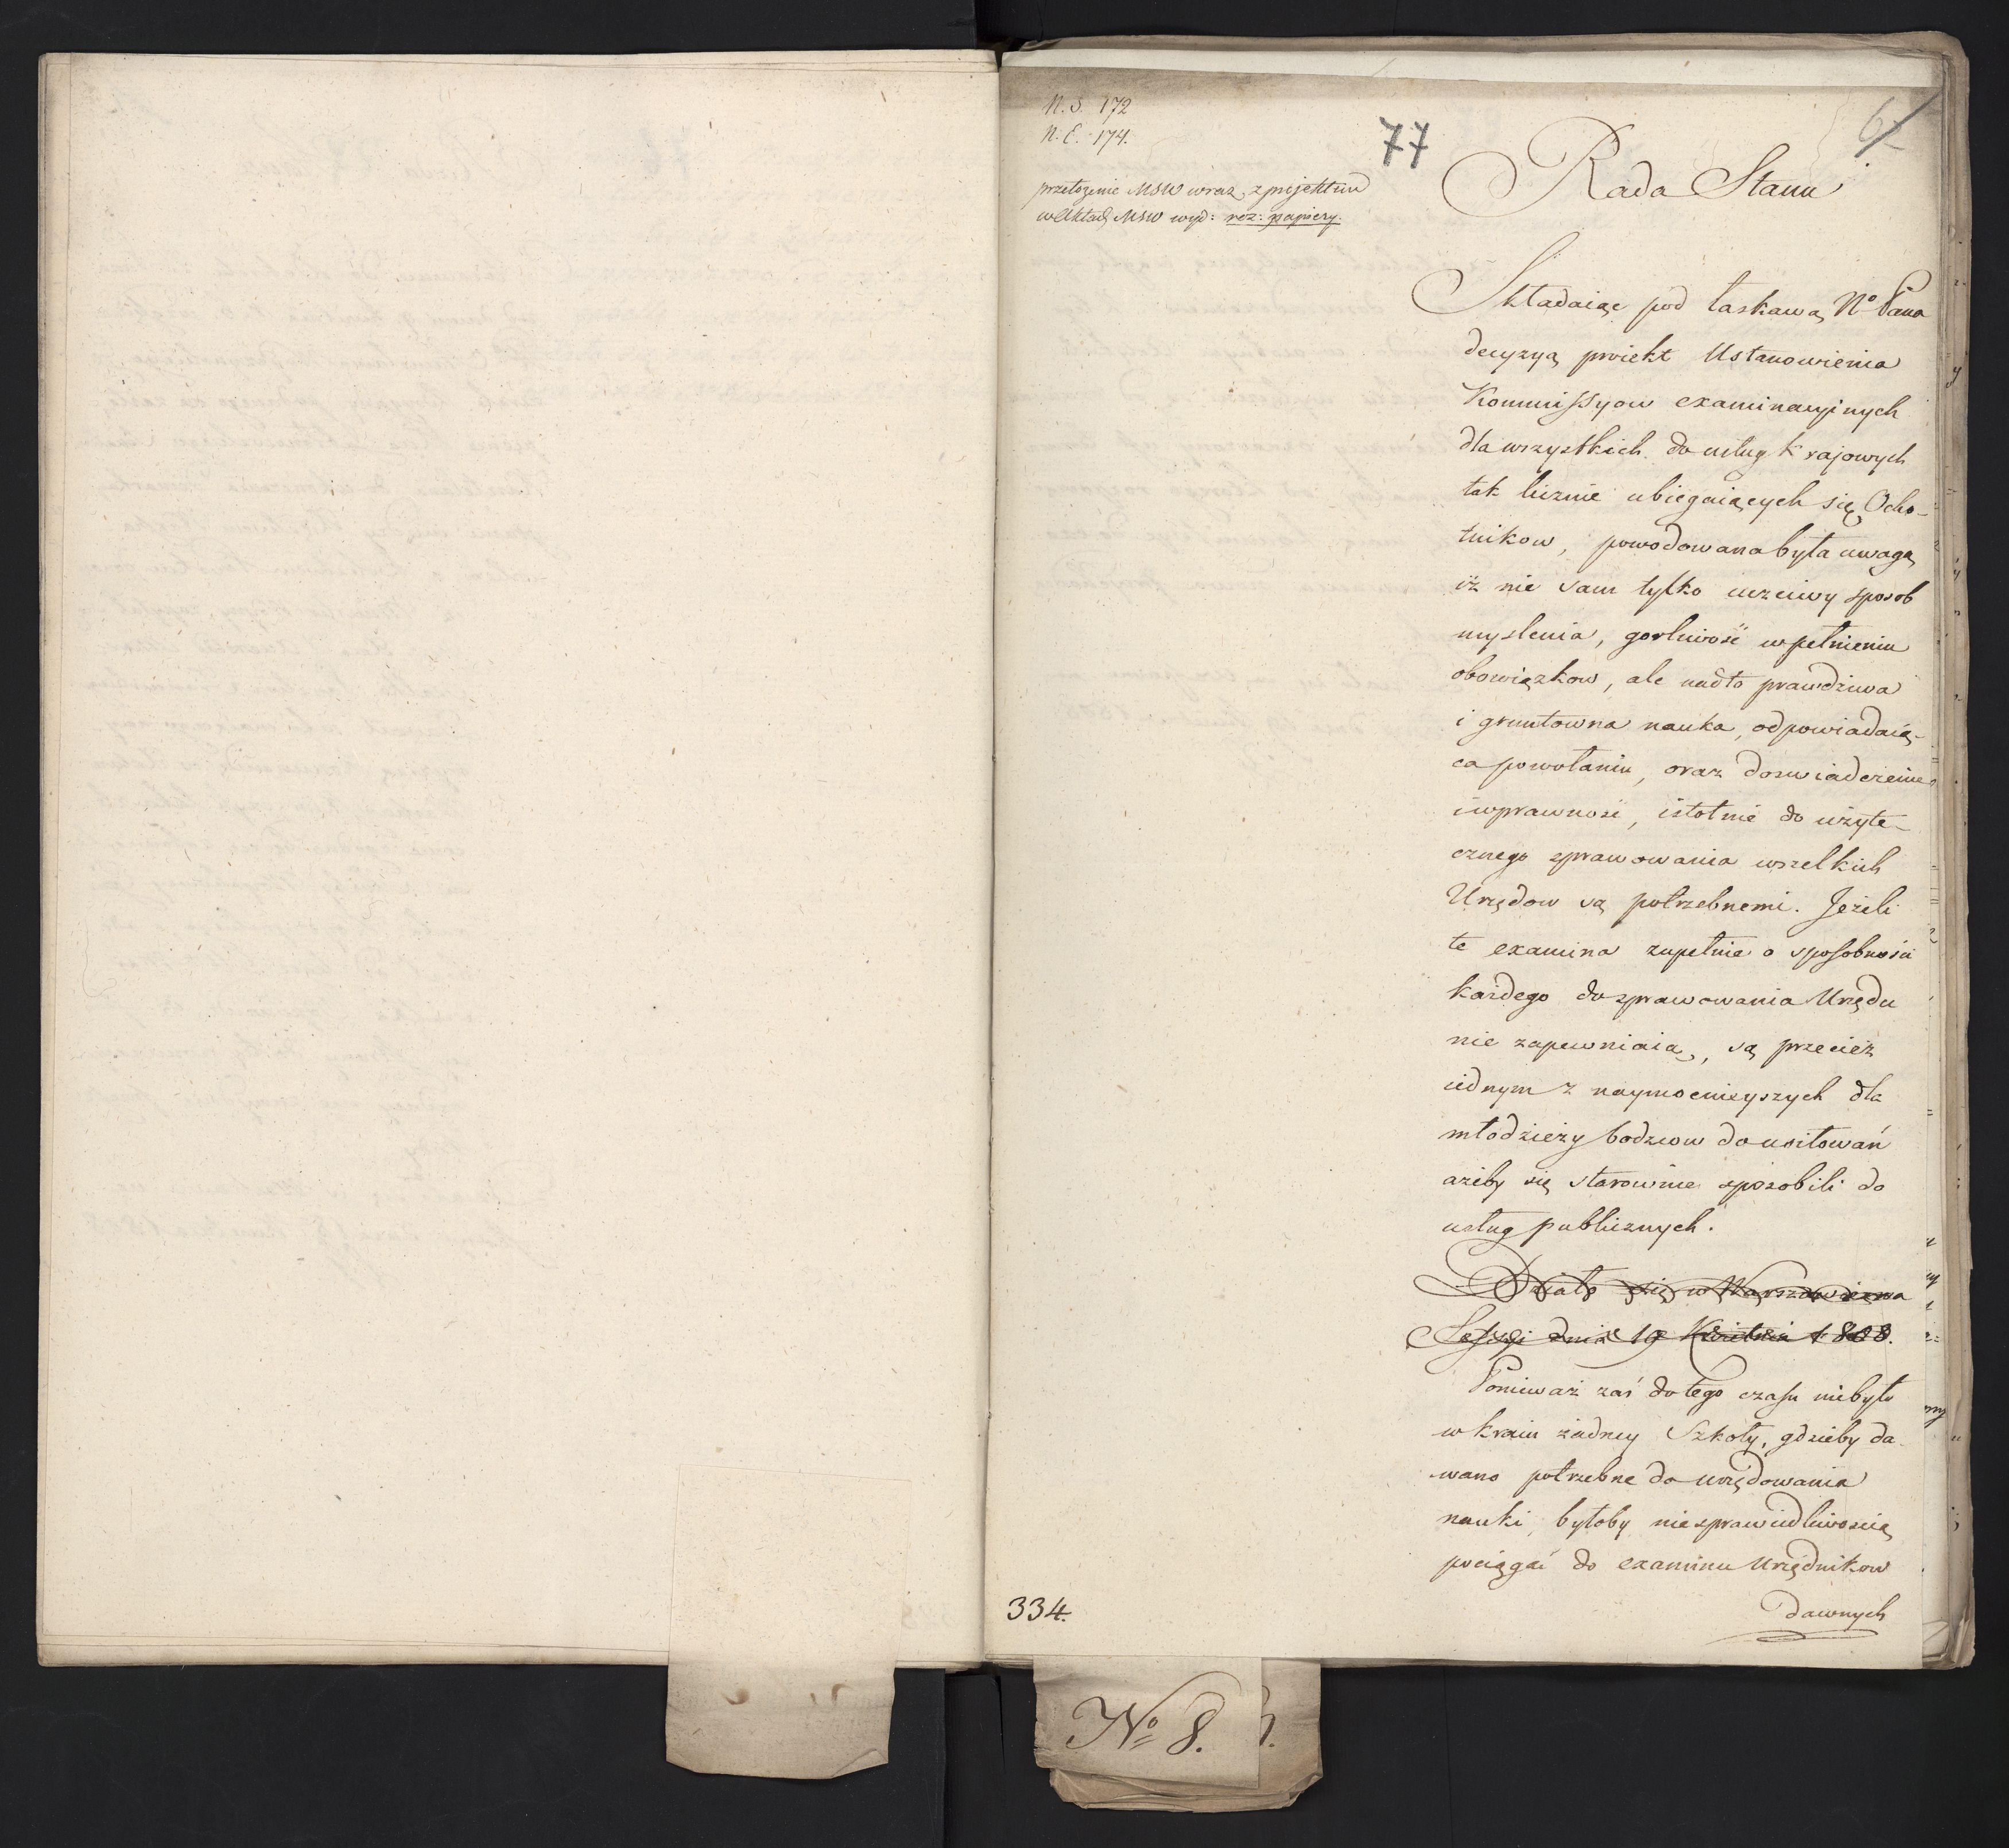 N. S. 172
N. E. 174.
77
przełożenie MSW wraz z projektem
w Aktach MSW wyd: roz: papiery.
Rada Stanu
Składaiąc pod łaskawą Nº Pana
decyzyą proiekt Ustanowienia
Kommissyow examinacyinych
dla wszystkich do usług krajowych
tak licznie ubiegaiących się Ocho-
tnikow, powodowana była uwagą
iż nie sam tylko uczciwy sposob
myslenia, gorliwość w pełnieniu
obowiązkow, ale nadto prawdziwa
i gruntowna nauka, odpowiadaią-
ca powołaniu, oraz doswiadczenie
i wprawność, istotnie do użyte-
cznego sprawowania wszelkich
Urzędow są potrzebnemi. Jeżeli
te examina zupełnie o sposobności
każdego do sprawowania Urzędu
nie zapewniaią, są przecież
iednym z naymocnieyszych dla
młodzieży bodzcow do usiłowań
ażeby się starownie sposobili do
usług publicznych.
Działo się w Warszawie na
Sessyi dnia 19 Kwietnia 1808.
Ponieważ zaś do tego czasu niebyło
w kraiu żadney Szkoły, gdzieby da-
wano potrzebne do urzędowania
nauki, byłoby niesprawiedliwoscią
pociągać do examinu Urzędnikow
dawnych
334.
Nº 8.